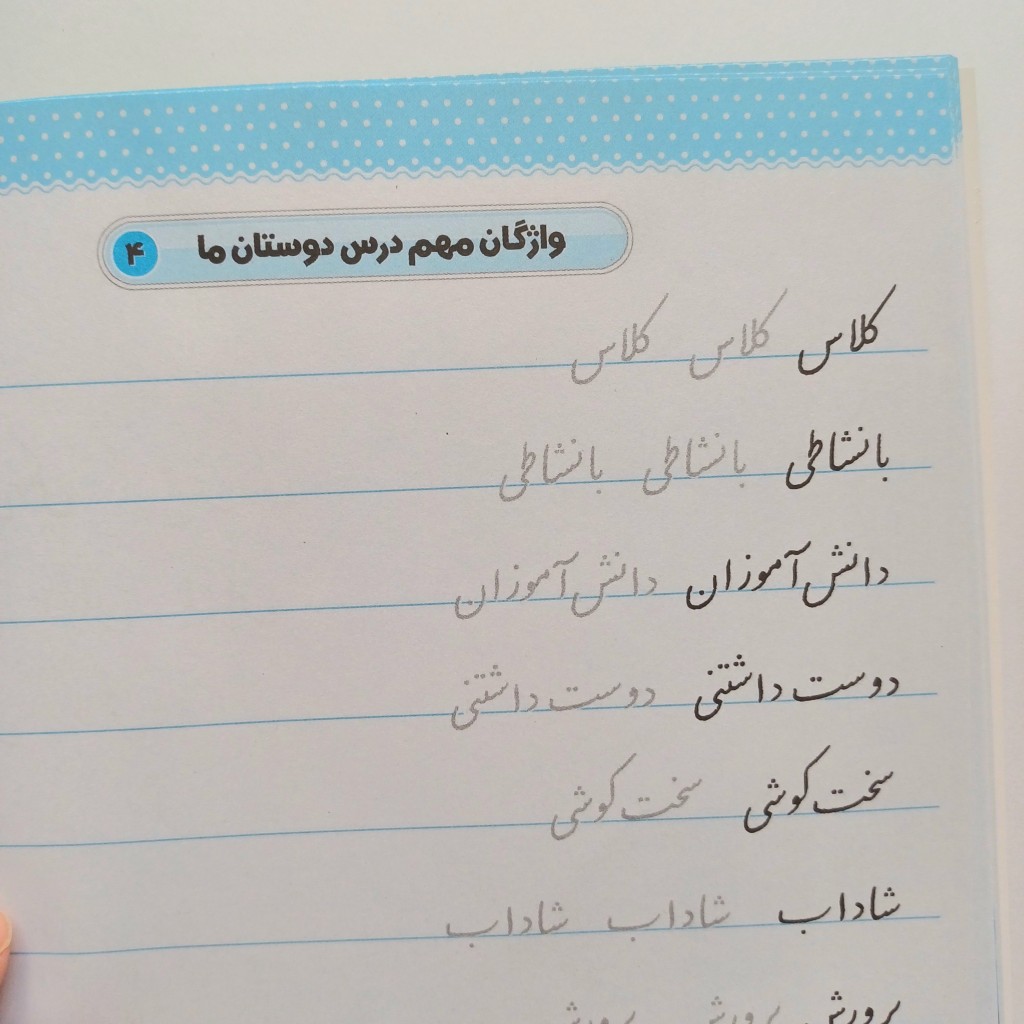 واژگان مهم درس دوستان ما ۴
کلاس کلاس کلاس
بانشاطی بانشاطی بانشاطی
دانش‌آموزان دانش‌آموزان
دوست داشتنی دوست داشتنی
سخت‌کوشی سخت‌کوشی
شاداب شاداب شاداب
پرورش پرورش پرورش